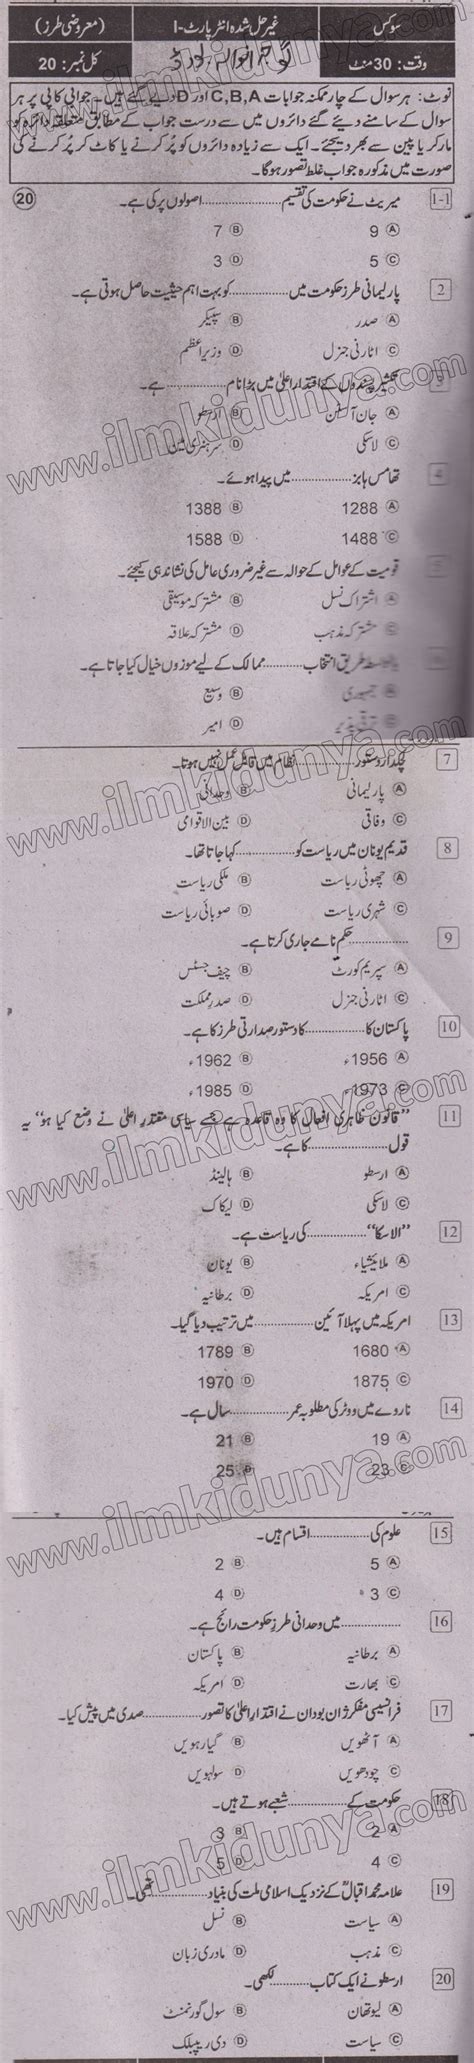 سوکس غیر حل شدہ انٹر پارٹ-I (معروضی طرز)
وقت: 30 منٹ گوجرانوالہ بورڈ کل نمبر: 20
نوٹ: ہر سوال کے چار ممکنہ جوابات C,B,A اور D دیئے گئے ہیں۔ جوابی کاپی پر ہر
سوال کے سامنے دیئے گئے دائروں میں سے درست جواب کے مطابق متعلقہ دائرہ کو
مارکر یا پین سے بھر دیجئے۔ ایک سے زیادہ دائروں کو پُر کرنے یا کاٹ کر پُر کرنے کی
صورت میں مذکورہ جواب غلط تصور ہوگا۔
1-1 میریٹ نے حکومت کی تقسیم ............ اصولوں پر کی ہے۔ (20)
A 9 B 7
C 5 D 3
2 پارلیمانی طرز حکومت میں ............ کو بہت اہم حیثیت حاصل ہوتی ہے۔
A صدر B سپیکر
C اٹارنی جنرل D وزیراعظم
3 تکثیر پسندوں کے اقتدار اعلیٰ میں بڑا نام ............ ہے۔
A جان آسٹن B ارسطو
C لاسکی D سرہنری مین
4 تھامس ہابز ............ میں پیدا ہوئے۔
A 1288 B 1388
C 1488 D 1588
5 قومیت کے عوامل کے حوالہ سے غیر ضروری عامل کی نشاندہی کیجئے۔
A اشتراک نسل B مشترکہ موسیقی
C مشترکہ مذہب D مشترکہ علاقہ
6 بالواسطہ طریق انتخاب ............ ممالک کے لیے موزوں خیال کیا جاتا ہے۔
A جمہوری B وسیع
C ترقی پذیر D امیر
7 لچکدار دستور ............ نظام میں قابل عمل نہیں ہوتا۔
A پارلیمانی B وحدانی
C وفاقی D بین الاقوامی
8 قدیم یونان میں ریاست کو ............ کہا جاتا تھا۔
A چھوٹی ریاست B ملکی ریاست
C شہری ریاست D صوبائی ریاست
9 ............ حکم نامے جاری کرتا ہے۔
A سپریم کورٹ B چیف جسٹس
C اٹارنی جنرل D صدر مملکت
10 پاکستان کا ............ کا دستور صدارتی طرز کا ہے۔
A 1956ء B 1962ء
C 1973ء D 1985ء
11 ”قانون ظاہری افعال کا وہ قاعدہ ہے جسے سیاسی مقتدر اعلیٰ نے وضع کیا ہو“ یہ
قول ............ کا ہے۔
A ارسطو B ہالینڈ
C لاسکی D لیکاک
12 ”الاسکا“ ............ کی ریاست ہے۔
A ملائیشیاء B یونان
C امریکہ D برطانیہ
13 امریکہ میں پہلا آئین ............ میں ترتیب دیا گیا۔
A 1680 B 1789
C 1875 D 1970
14 ناروے میں ووٹر کی مطلوبہ عمر ............ سال ہے۔
A 19 B 21
C 23 D 25
15 علوم کی ............ اقسام ہیں۔
A 5 B 2
C 3 D 4
16 ............ میں وحدانی طرز حکومت رائج ہے۔
A برطانیہ B پاکستان
C بھارت D امریکہ
17 فرانسیسی مفکر ژان بودان نے اقتدار اعلیٰ کا تصور ............ صدی میں پیش کیا۔
A آٹھویں B گیارہویں
C چودھویں D سولہویں
18 حکومت کے ............ شعبے ہوتے ہیں۔
A 2 B 3
C 4 D 5
19 علامہ محمد اقبالؒ کے نزدیک اسلامی ملت کی بنیاد ............ تھی۔
A سیاست B نسل
C مذہب D مادری زبان
20 ارسطو نے ایک کتاب ............ لکھی۔
A لیوتھان B سول گورنمنٹ
C سیاست D دی ریپبلک
www.ilmkidunya.com
www.ilmkidunya.com
www.ilmkidunya.com
www.ilmkidunya.com
www.ilmkidunya.com
www.ilmkidunya.com
www.ilmkidunya.com